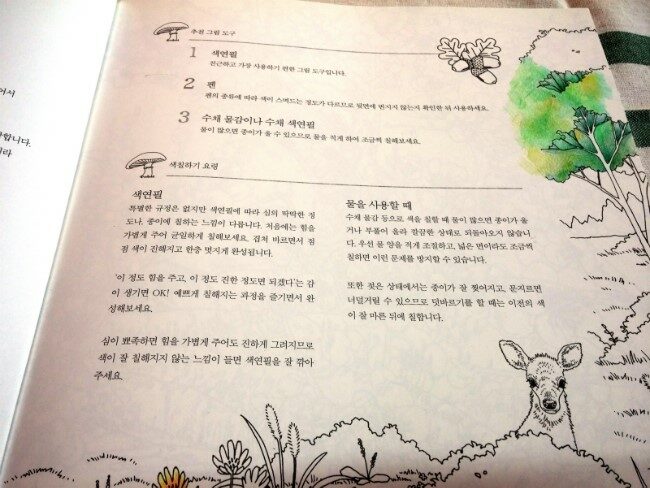 어서
합니다.
리라
추천 그림 도구
1 색연필
친근하고 가장 사용하기 편한 그림 도구입니다.
2 펜
펜의 종류에 따라 색이 스며드는 정도가 다르므로 뒷면에 번지지 않는지 확인한 뒤 사용하세요.
3 수채 물감이나 수채 색연필
물이 많으면 종이가 울 수 있으므로 물을 적게 하여 조금씩 칠해보세요.
색칠하기 요령
색연필
특별한 규정은 없지만 색연필에 따라 심의 딱딱한 정
도나, 종이에 칠하는 느낌이 다릅니다. 처음에는 힘을
가볍게 주어 균일하게 칠해보세요. 겹쳐 바르면서 점
점 색이 진해지고 한층 멋지게 완성됩니다.
'이 정도 힘을 주고, 이 정도 진한 정도면 되겠다'는 감
이 생기면 OK! 예쁘게 칠해지는 과정을 즐기면서 완
성해보세요.
심이 뾰족하면 힘을 가볍게 주어도 진하게 그려지므로
색이 잘 칠해지지 않는 느낌이 들면 색연필을 잘 깎아
주세요.
물을 사용할 때
수채 물감 등으로 색을 칠할 때 물이 많으면 종이가 울
거나 부풀어 올라 깔끔한 상태로 되돌아오지 않습니
다. 우선 물 양을 적게 조절하고, 넓은 면이라도 조금씩
칠하면 이런 문제를 방지할 수 있습니다.
또한 젖은 상태에서는 종이가 잘 찢어지고, 문지르면
너덜거릴 수 있으므로 덧바르기를 할 때는 이전의 색
이 잘 마른 뒤에 칠합니다.